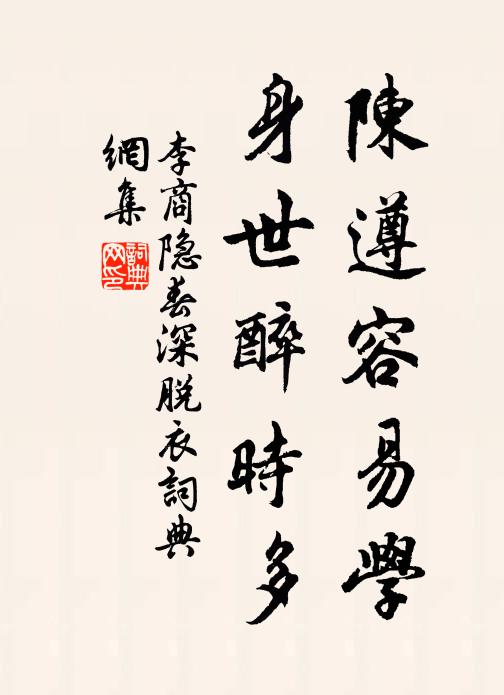 陳遵容易學
身世醉時多
李商隐春深脱衣詞典
網集
詞典
网印